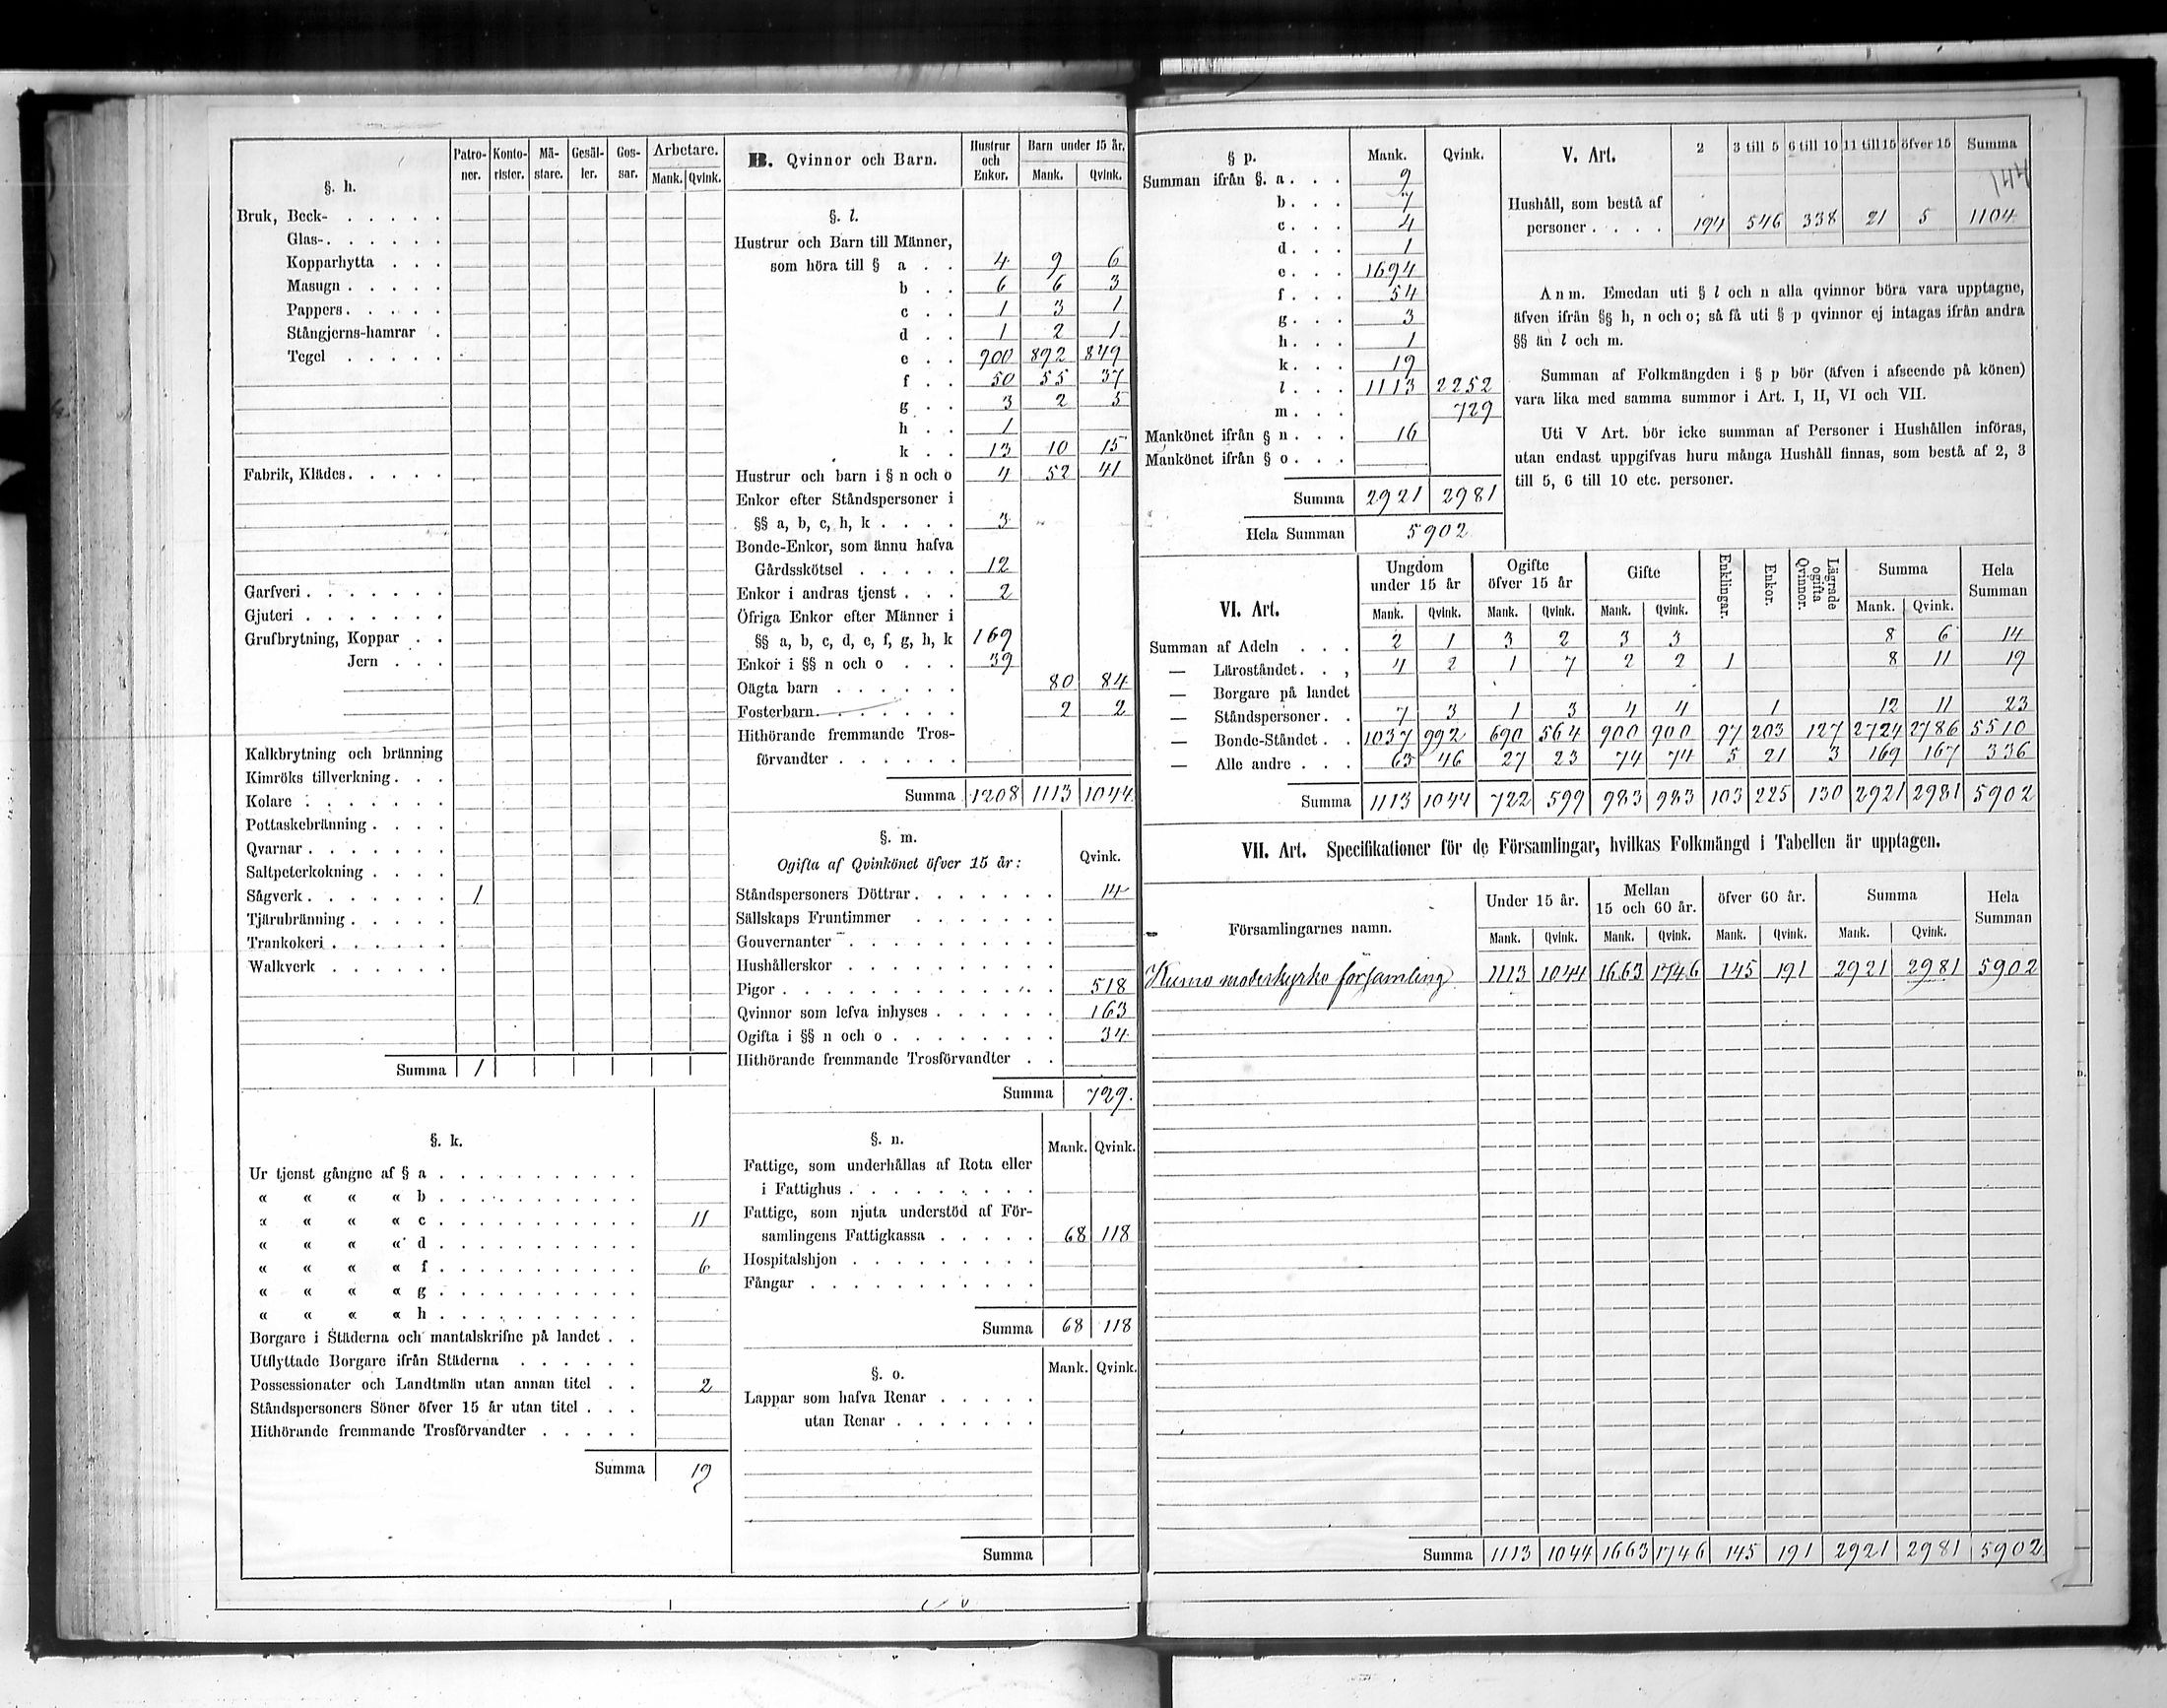 §. h. Patro-ner. Konto-rister. Mä-stare. Gesäl-ler. Gos-sar. Arbetare. Mank. Qvink.
Bruk, Beck- . . . . .
Glas- . . . . . .
Kopparhytta . . .
Masugn . . . . .
Pappers . . . . .
Stångjerns-hamrar .
Tegel . . . . .
Fabrik, Klädes . . . . .
Garfveri . . . . . . .
Gjuteri . . . . . . .
Grufbrytning, Koppar . .
Jern . . .
Kalkbrytning och bränning
Kimröks tillverkning . . .
Kolare . . . . . . .
Pottaskebränning . . . .
Qvarnar . . . . . . .
Saltpeterkokning . . . .
Sågverk . . . . . . . 1
Tjärubränning . . . . .
Trankokeri . . . . . .
Walkverk . . . . . .
Summa 1
§. k.
Ur tjenst gångne af § a . . . . . . . . . .
« « « « b . . . . . . . . . .
« « « « c . . . . . . . . . . 11
« « « « d . . . . . . . . . .
« « « « f . . . . . . . . . . 6
« « « « g . . . . . . . . . .
« « « « h . . . . . . . . . .
Borgare i Städerna och mantalskrifne på landet . .
Utflyttade Borgare ifrån Städerna . . . . . .
Possessionater och Landtmän utan annan titel . . 2
Ståndspersoners Söner öfver 15 år utan titel . . .
Hithörande fremmande Trosförvandter . . . . .
Summa 19
B. Qvinnor och Barn. Hustrur och Enkor. Barn under 15 år. Mank. Qvink.
§. l.
Hustrur och Barn till Männer,
som höra till § a . . 4 9 6
b . . 6 6 3
c . . 1 3 1
d . . 1 2 1
e . . 900 892 849
f . . 50 55 37
g . . 3 2 5
h . . 1
k . . 13 10 15
Hustrur och barn i § n och o 4 52 41
Enkor efter Ståndspersoner i
§§ a, b, c, h, k . . . . 3
Bonde-Enkor, som ännu hafva
Gårdsskötsel . . . . . 12
Enkor i andras tjenst . . . 2
Öfriga Enkor efter Männer i
§§ a, b, c, d, e, f, g, h, k 169
Enkor i §§ n och o . . . 39
Oägta barn . . . . . . 80 84
Fosterbarn . . . . . . 2 2
Hithörande fremmande Tros-
förvandter . . . . . .
Summa 1208 1113 1044
§. m.
Ogifta af Qvinkönet öfver 15 år: Qvink.
Ståndspersoners Döttrar . . . . . . . 14
Sällskaps Fruntimmer . . . . . . .
Gouvernanter . . . . . . . . . .
Hushållerskor . . . . . . . . . .
Pigor . . . . . . . . . . . . . 518
Qvinnor som lefva inhyses . . . . . . 163
Ogifta i §§ n och o . . . . . . . . 34
Hithörande fremmande Trosförvandter . .
Summa 729.
§. n. Mank. Qvink.
Fattige, som underhållas af Rota eller
i Fattighus . . . . . . . . .
Fattige, som njuta understöd af För-
samlingens Fattigkassa . . . . . 68 118
Hospitalshjon . . . . . . . . .
Fångar . . . . . . . . . . .
Summa 68 118
§. o. Mank. Qvink.
Lappar som hafva Renar . . . . .
utan Renar . . . . . . .
Summa
§ p. Mank. Qvink.
Summan ifrån §. a . . . 9
b . . . 7
c . . . 4
d . . . 1
e . . . 1694
f . . . 54
g . . . 3
h . . . 1
k . . . 19
l . . . 1113 2252
m . . . 729
Mankönet ifrån § n . . . 16
Mankönet ifrån § o . . .
Summa 2921 2981
Hela Summan 5902
144
V. Art. 2 3 till 5 6 till 10 11 till 15 öfver 15 Summa
Hushåll, som bestå af
personer . . . . 194 546 338 21 5 1104
Anm. Emedan uti § l och n alla qvinnor böra vara upptagne,
äfven ifrån §§ h, n och o; så få uti § p qvinnor ej intagas ifrån andra
§§ än l och m.
Summan af Folkmängden i § p bör (äfven i afseende på könen)
vara lika med samma summor i Art. I, II, VI och VII.
Uti V Art. bör icke summan af Personer i Hushållen införas,
utan endast uppgifvas huru många Hushåll finnas, som bestå af 2, 3
till 5, 6 till 10 etc. personer.
VI. Art. Ungdom under 15 år Ogifte öfver 15 år Gifte Enklingar. Enkor. Lägrade ogifta Qvinnor. Summa Hela Summan
Mank. Qvink. Mank. Qvink. Mank. Qvink. Mank. Qvink.
Summan af Adeln . . . 2 1 3 2 3 3 8 6 14
— Läroståndet . . , 4 2 1 7 2 2 1 8 11 19
— Borgare på landet
— Ståndspersoner . . 7 3 1 3 4 4 1 12 11 23
— Bonde-Ståndet . . 1037 992 690 564 900 900 97 203 127 2724 2786 5510
— Alle andre . . . 63 46 27 23 74 74 5 21 3 169 167 336
Summa 1113 1044 722 599 983 983 103 225 130 2921 2981 5902
VII. Art. Specifikationer för de Församlingar, hvilkas Folkmängd i Tabellen är upptagen.
Församlingarnes namn. Under 15 år. Mellan 15 och 60 år. öfver 60 år. Summa Hela Summan
Mank. Qvink. Mank. Qvink. Mank. Qvink. Mank. Qvink.
moderkyrko församling 1113 1044 1663 1746 145 191 2921 2981 5902
Summa 1113 1044 1663 1746 145 191 2921 2981 5902